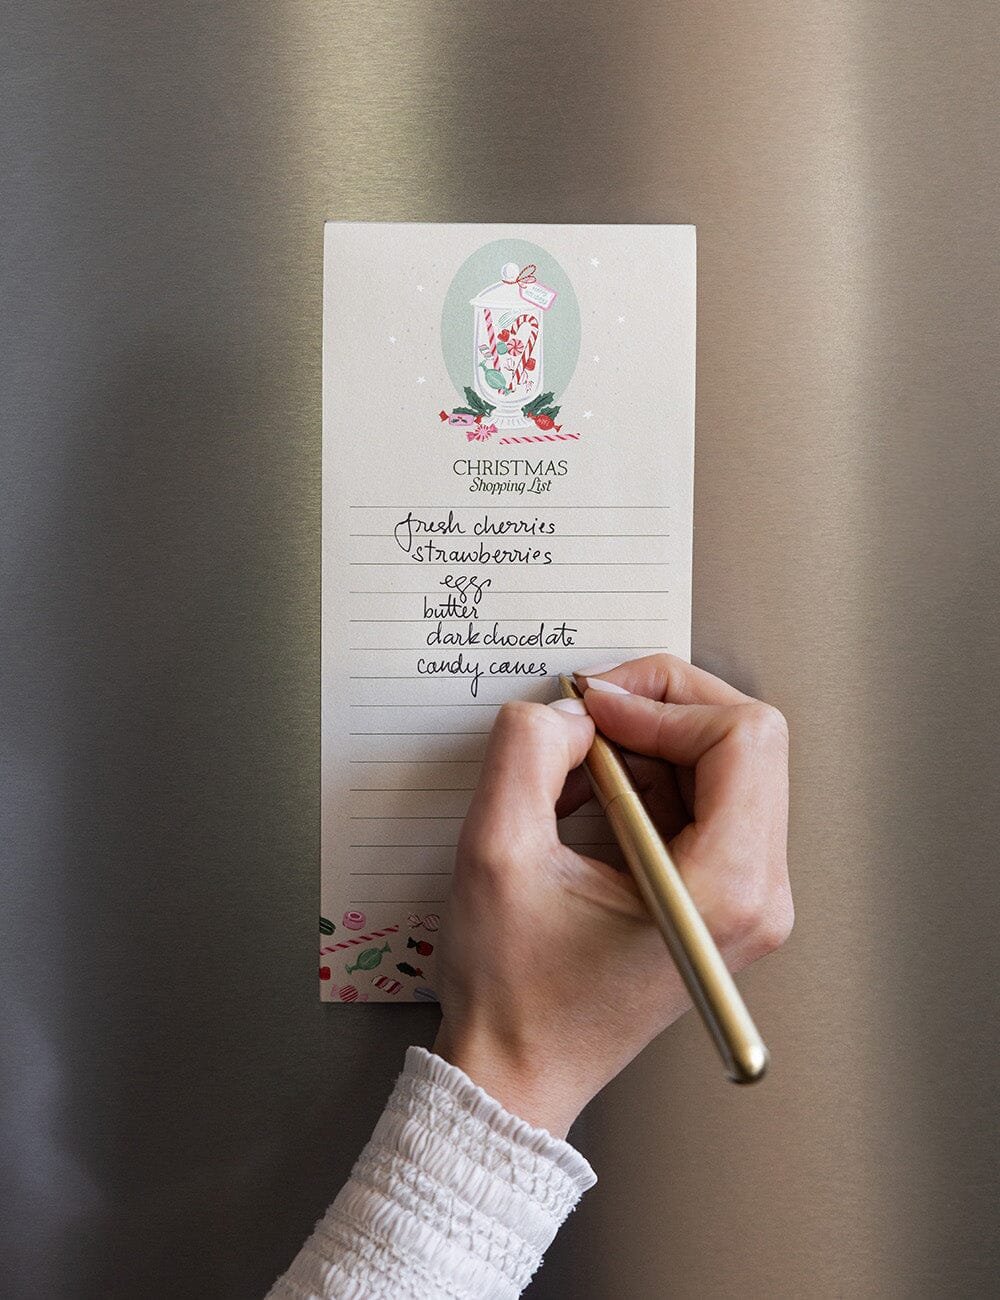 CHRISTMAS
Shopping List
fresh cherries
strawberries
eggs
butter
dark chocolate
candy canes